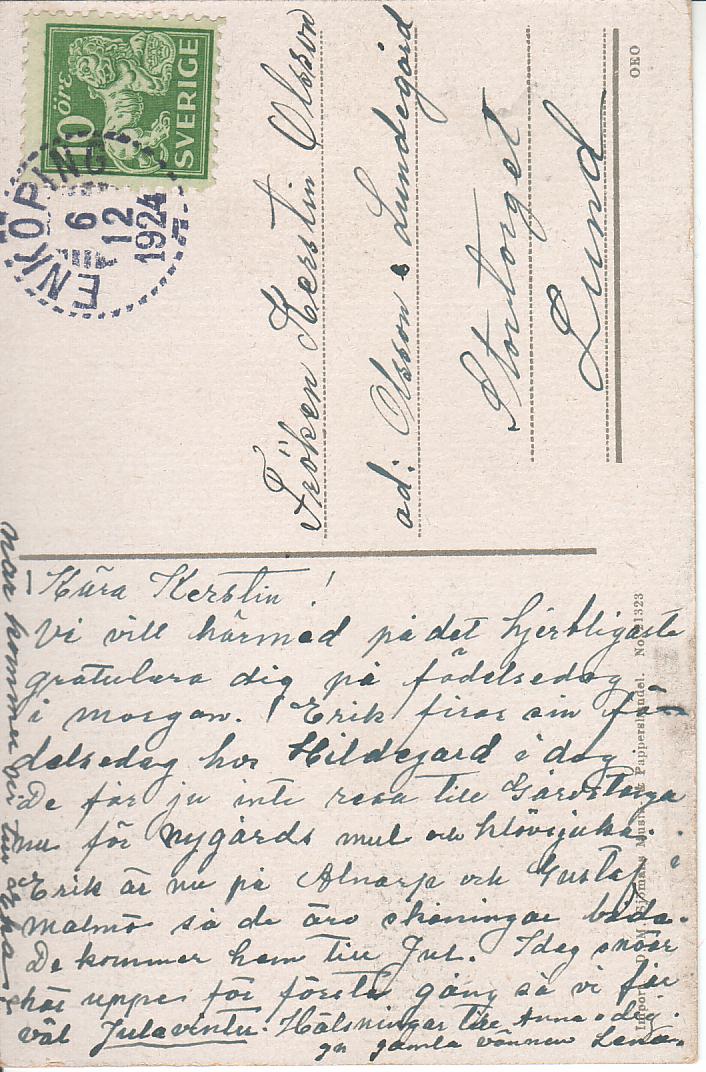 10 öre
SVERIGE
ENKÖPING
6
12
1924
Fröken Kerstin Olsson
ad: Olsson & Lundegård
Stortorget
Lund
OEO
Kära Kerstin!
Vi vill härmed på det hjertligaste
gratulera dig på födelsedag
i morgon. Erik firar sin fö-
delsedag hos Hildegard i dag
De får ju inte resa till Gårdstånga
nu för nygårds mul och klövsjuka.
Erik är nu på Alnarp och Gustaf i
Malmö så de äro skåningar båda.
De kommer hem till Jul. Idag snöar
här uppe för första gång så vi får
väl Julavinter. Hälsningar till Anna o dig.
gn gamla vännen Lena.
när kommer
Import. D. M. Sjömans Musik- & Pappershandel. No. 21323